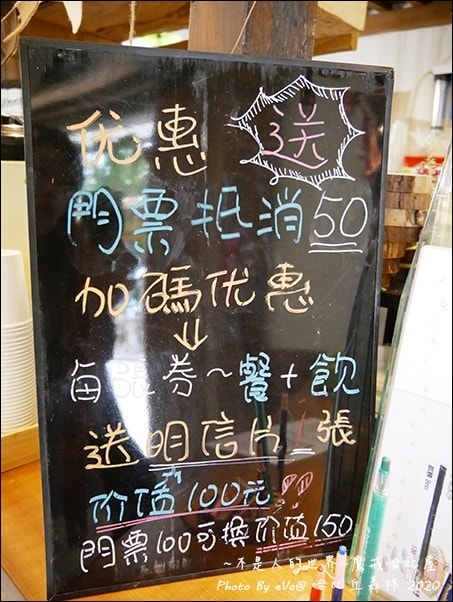 优惠 送
門票抵消50
加碼优惠
↓
每張券~餐+飲
送明信片1張
价值100元!!
門票100可換价值150
~不是人的世界~魔戒哈比屋
Photo By eVa@ 哈比丘森林 2020